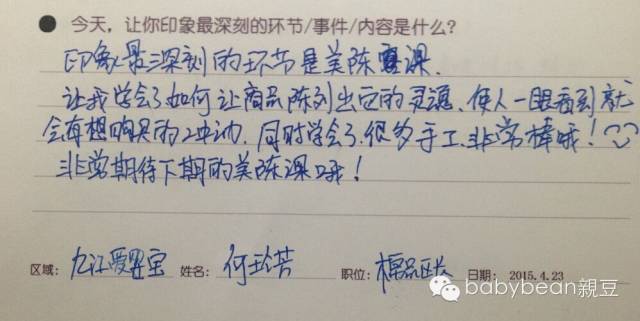 ● 今天，让你印象最深刻的环节/事件/内容是什么?
印象最深刻的环节是美陈课.
让我学会了如何让商品陈列出它的灵魂、使人一眼看到就
会有想购买的冲动. 同时学会了很多手工. 非常棒哦!
非常期待下期的美陈课哦!
区域: 九江爱婴宝 姓名: 何玲芳 职位: 棉品区长 日期: 2015.4.23
babybean親豆